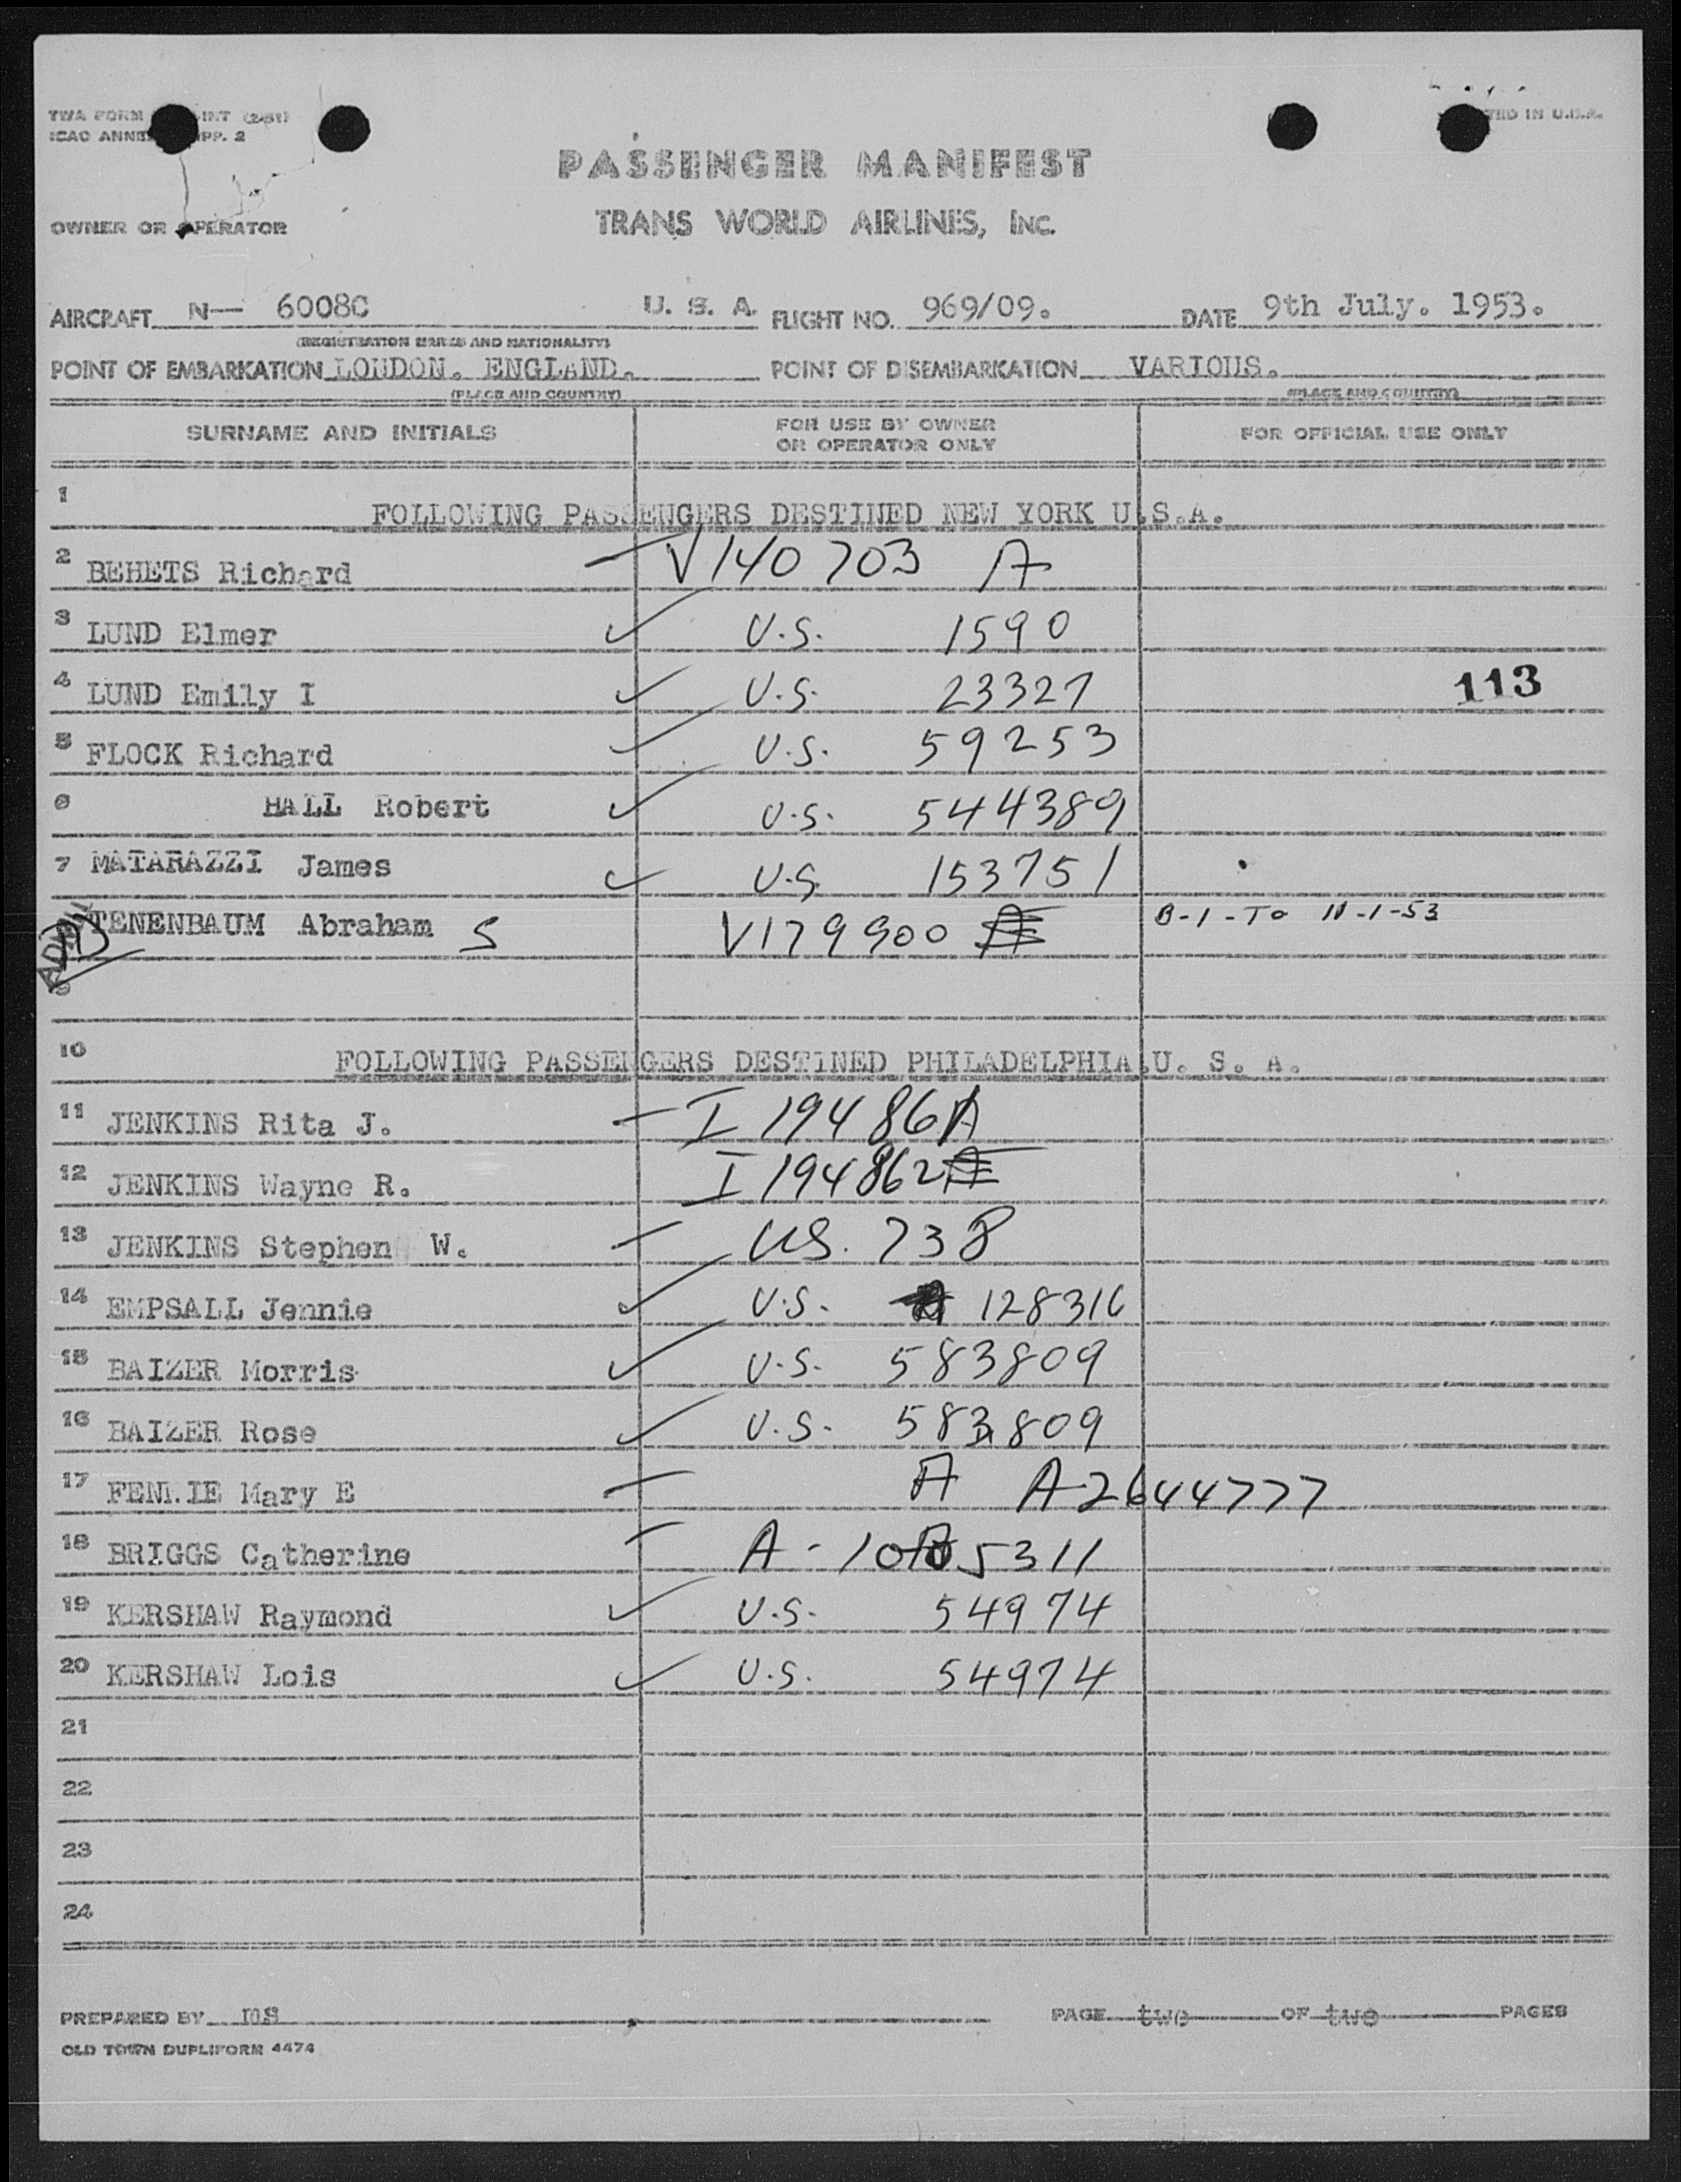 TWA FORM INT (2-51) TED IN U.S.A.
ICAO ANNEX APP. 2
PASSENGER MANIFEST
OWNER OR OPERATOR TRANS WORLD AIRLINES, INC.
AIRCRAFT N— 6008C U. S. A. FLIGHT NO. 969/09. DATE 9th July. 1953.
(REGISTRATION MARKS AND NATIONALITY)
POINT OF EMBARKATION LONDON. ENGLAND. POINT OF DISEMBARKATION VARIOUS.
(PLACE AND COUNTRY) (PLACE AND COUNTRY)
SURNAME AND INITIALS FOR USE BY OWNER OR OPERATOR ONLY FOR OFFICIAL USE ONLY
1 FOLLOWING PASSENGERS DESTINED NEW YORK U.S.A.
2 BEHETS Richard V140703 A
3 LUND Elmer ✓ U.S. 1590
4 LUND Emily I ✓ U.S. 23327 113
5 FLOCK Richard ✓ U.S. 59253
6 HALL Robert ✓ U.S. 544389
7 MATARAZZI James ✓ U.S. 153751
TENENBAUM Abraham S V179900 B-1-To 11-1-53
9
10 FOLLOWING PASSENGERS DESTINED PHILADELPHIA.U. S. A.
11 JENKINS Rita J. I 194861
12 JENKINS Wayne R. I 194862
13 JENKINS Stephen W. US. 738
14 EMPSALL Jennie ✓ U.S. 128316
15 BAIZER Morris ✓ U.S. 583809
16 BAIZER Rose ✓ U.S. 583809
17 Mary E A A2644777
18 BRIGGS Catherine
19 KERSHAW Raymond ✓ U.S. 54974
20 KERSHAW Lois ✓ U.S. 54974
21
22
23
24
PREPARED BY PAGE two OF two PAGES
OLD TOWN DUPLIFORM 4474